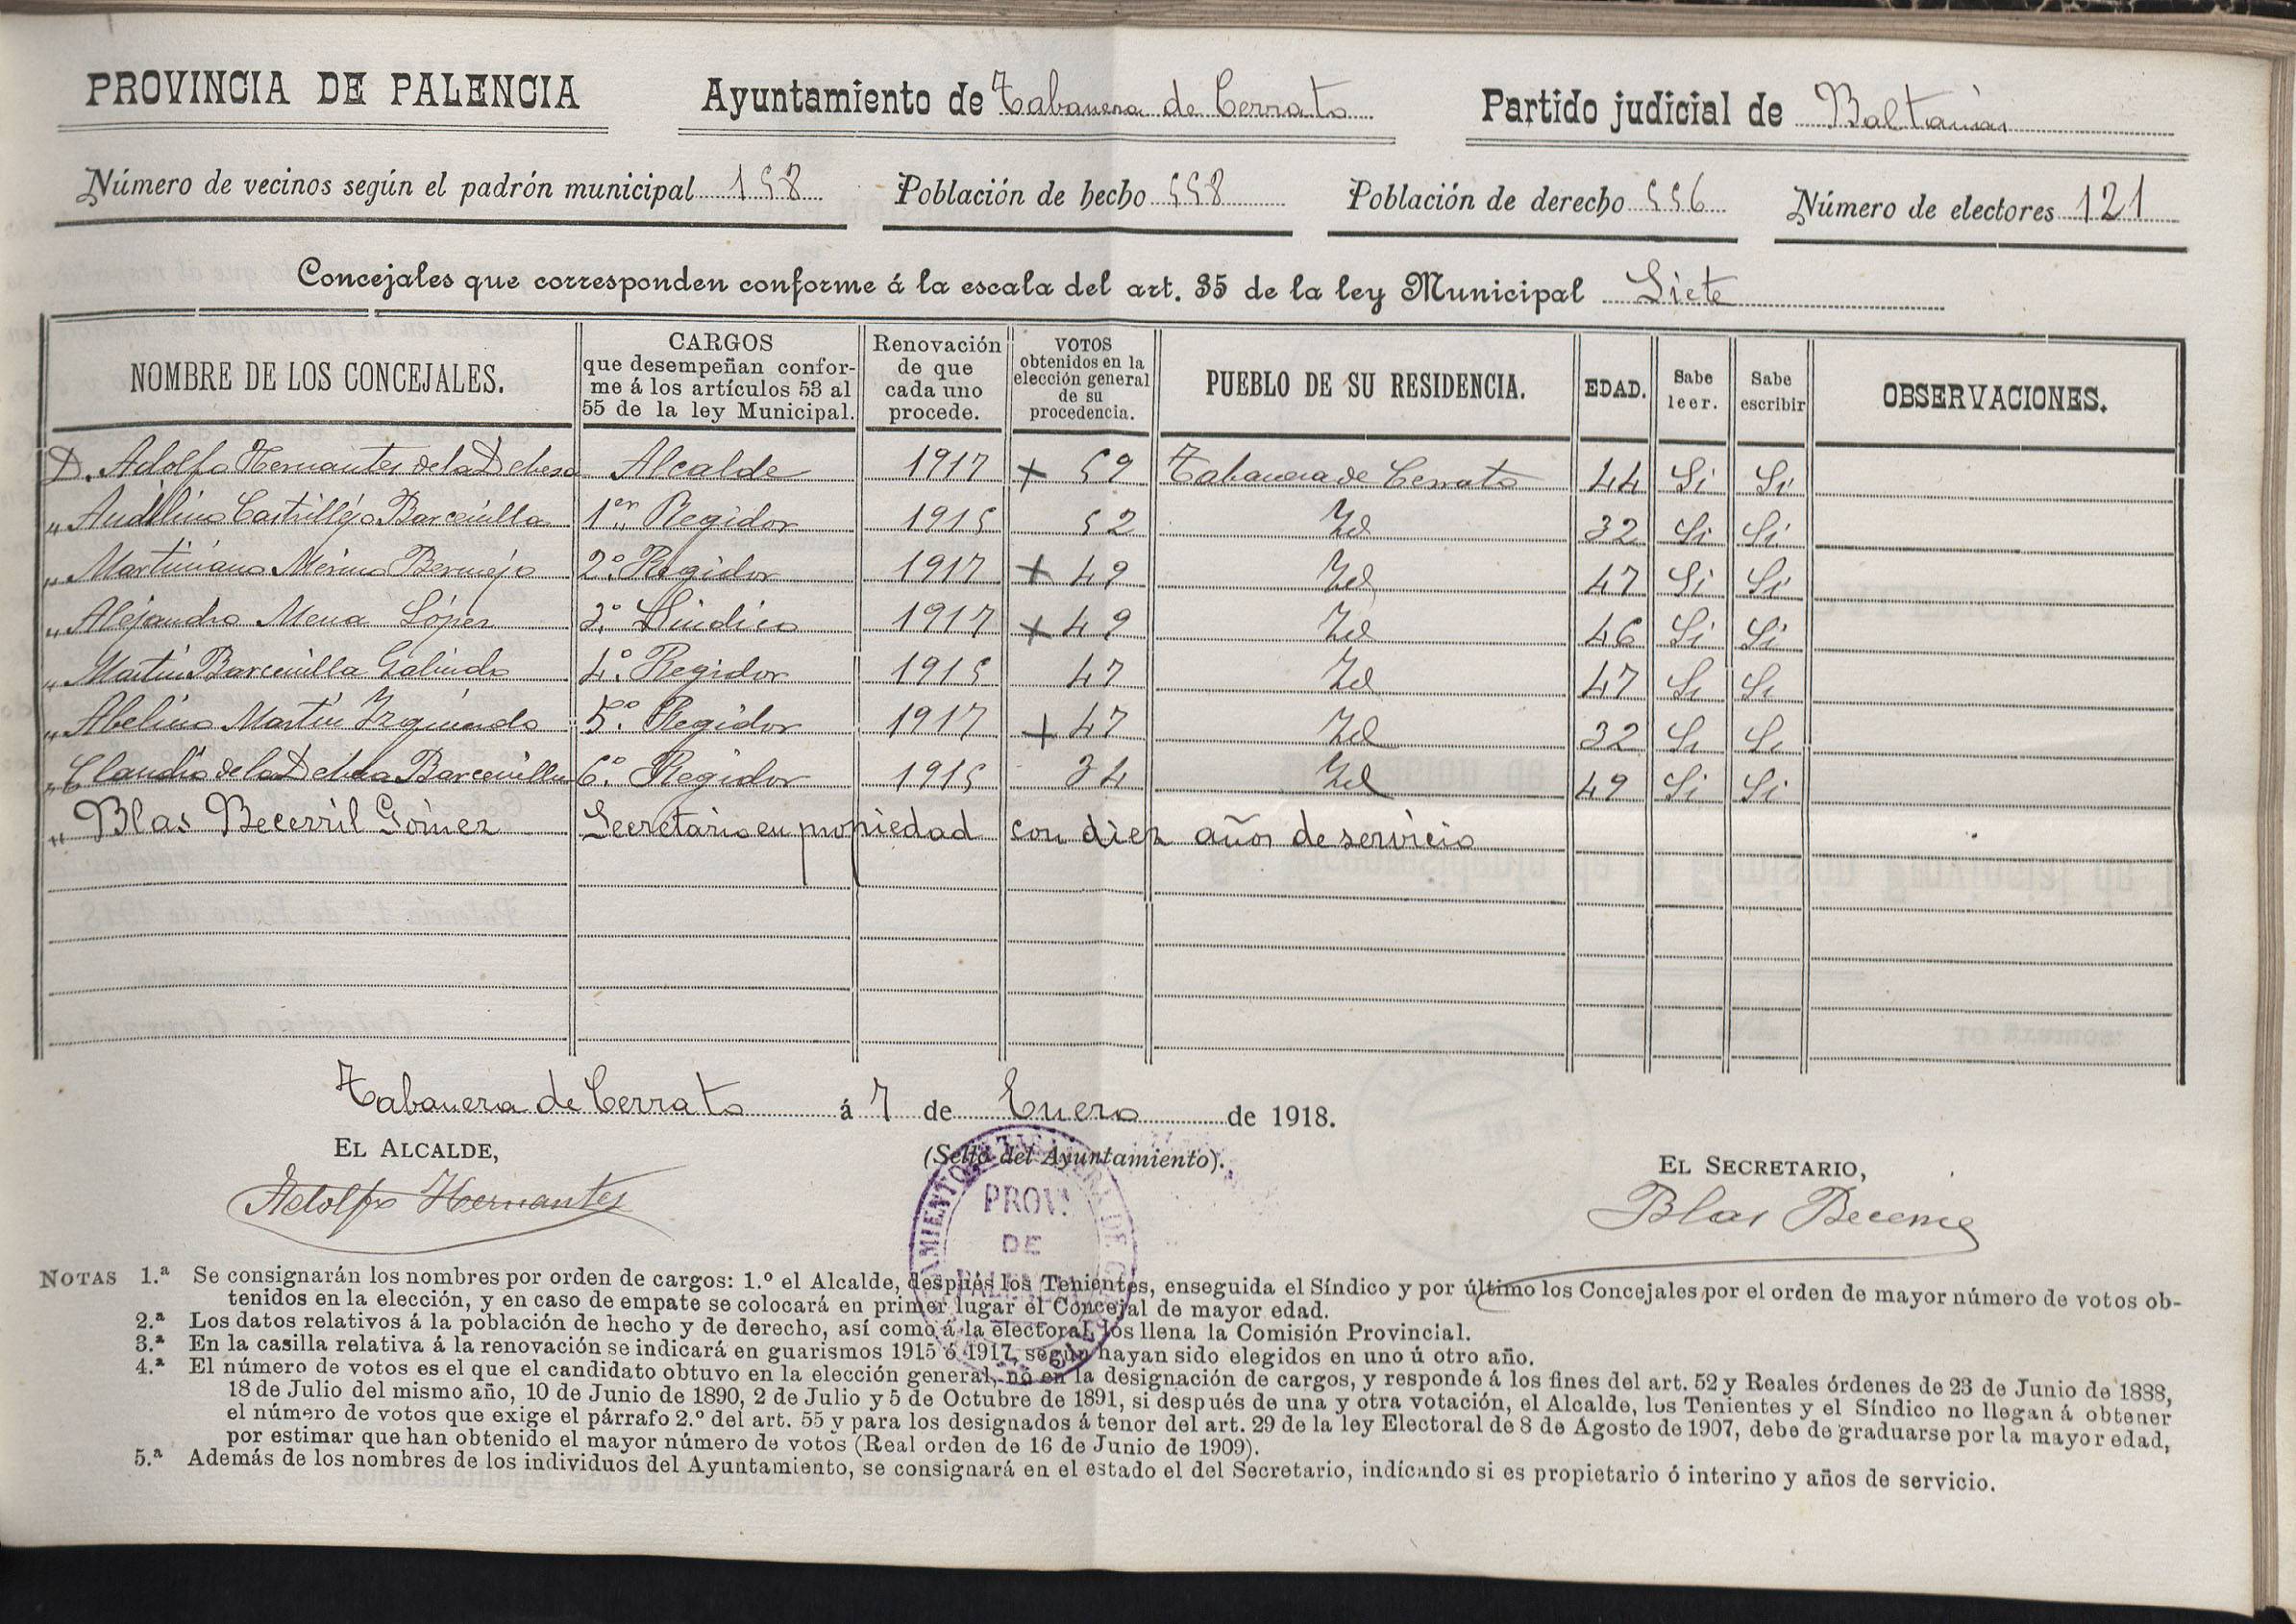 PROVINCIA DE PALENCIA Ayuntamiento de Tabanera de Cerrato Partido judicial de Baltanás
Número de vecinos según el padrón municipal 158 Población de hecho 558 Población de derecho 556 Número de electores 121
Concejales que corresponden conforme á la escala del art. 35 de la ley Municipal Siete
NOMBRE DE LOS CONCEJALES. CARGOS que desempeñan conforme á los artículos 53 al 55 de la ley Municipal. Renovación de que cada uno procede. VOTOS obtenidos en la elección general de su procedencia. PUEBLO DE SU RESIDENCIA. EDAD. Sabe leer. Sabe escribir OBSERVACIONES.
D. Adolfo Hernantes de la Dehesa Alcalde 1917 + 59 Tabanera de Cerrato 44 Si Si
„ Audilino Castrillejo Barcenilla 1er Regidor 1915 52 Id 32 Si Si
„ Martiniano Merino Bermejo 2º Regidor 1917 + 49 Id 47 Si Si
„ Alejandro Mena López 3º Sindico 1917 + 49 Id 46 Si Si
„ Martin Barcenilla Galindo 4º Regidor 1915 47 Id 47 Si Si
„ Abelino Martin Izquierdo 5º Regidor 1917 + 47 Id 32 Si Si
„ Claudio de la Dehesa Barcenilla 6º Regidor 1915 34 Id 49 Si Si
„ Blas Becerril Gómez Secretario en propiedad con diez años de servicio
Tabanera de Cerrato á 7 de Enero de 1918.
EL ALCALDE, (Sello del Ayuntamiento). EL SECRETARIO,
Adolfo Hernantes PROV. DE Blas Becerril
NOTAS 1.ª Se consignarán los nombres por orden de cargos: 1.º el Alcalde, después los Tenientes, enseguida el Síndico y por último los Concejales por el orden de mayor número de votos ob-
tenidos en la elección, y en caso de empate se colocará en primer lugar el Concejal de mayor edad.
2.ª Los datos relativos á la población de hecho y de derecho, así como á la electoral, los llena la Comisión Provincial.
3.ª En la casilla relativa á la renovación se indicará en guarismos 1915 ó 1917, según hayan sido elegidos en uno ú otro año.
4.ª El número de votos es el que el candidato obtuvo en la elección general, no en la designación de cargos, y responde á los fines del art. 52 y Reales órdenes de 23 de Junio de 1888,
18 de Julio del mismo año, 10 de Junio de 1890, 2 de Julio y 5 de Octubre de 1891, si después de una y otra votación, el Alcalde, los Tenientes y el Síndico no llegan á obtener
el número de votos que exige el párrafo 2.º del art. 55 y para los designados á tenor del art. 29 de la ley Electoral de 8 de Agosto de 1907, debe de graduarse por la mayor edad,
por estimar que han obtenido el mayor número de votos (Real orden de 16 de Junio de 1909).
5.ª Además de los nombres de los individuos del Ayuntamiento, se consignará en el estado el del Secretario, indicando si es propietario ó interino y años de servicio.